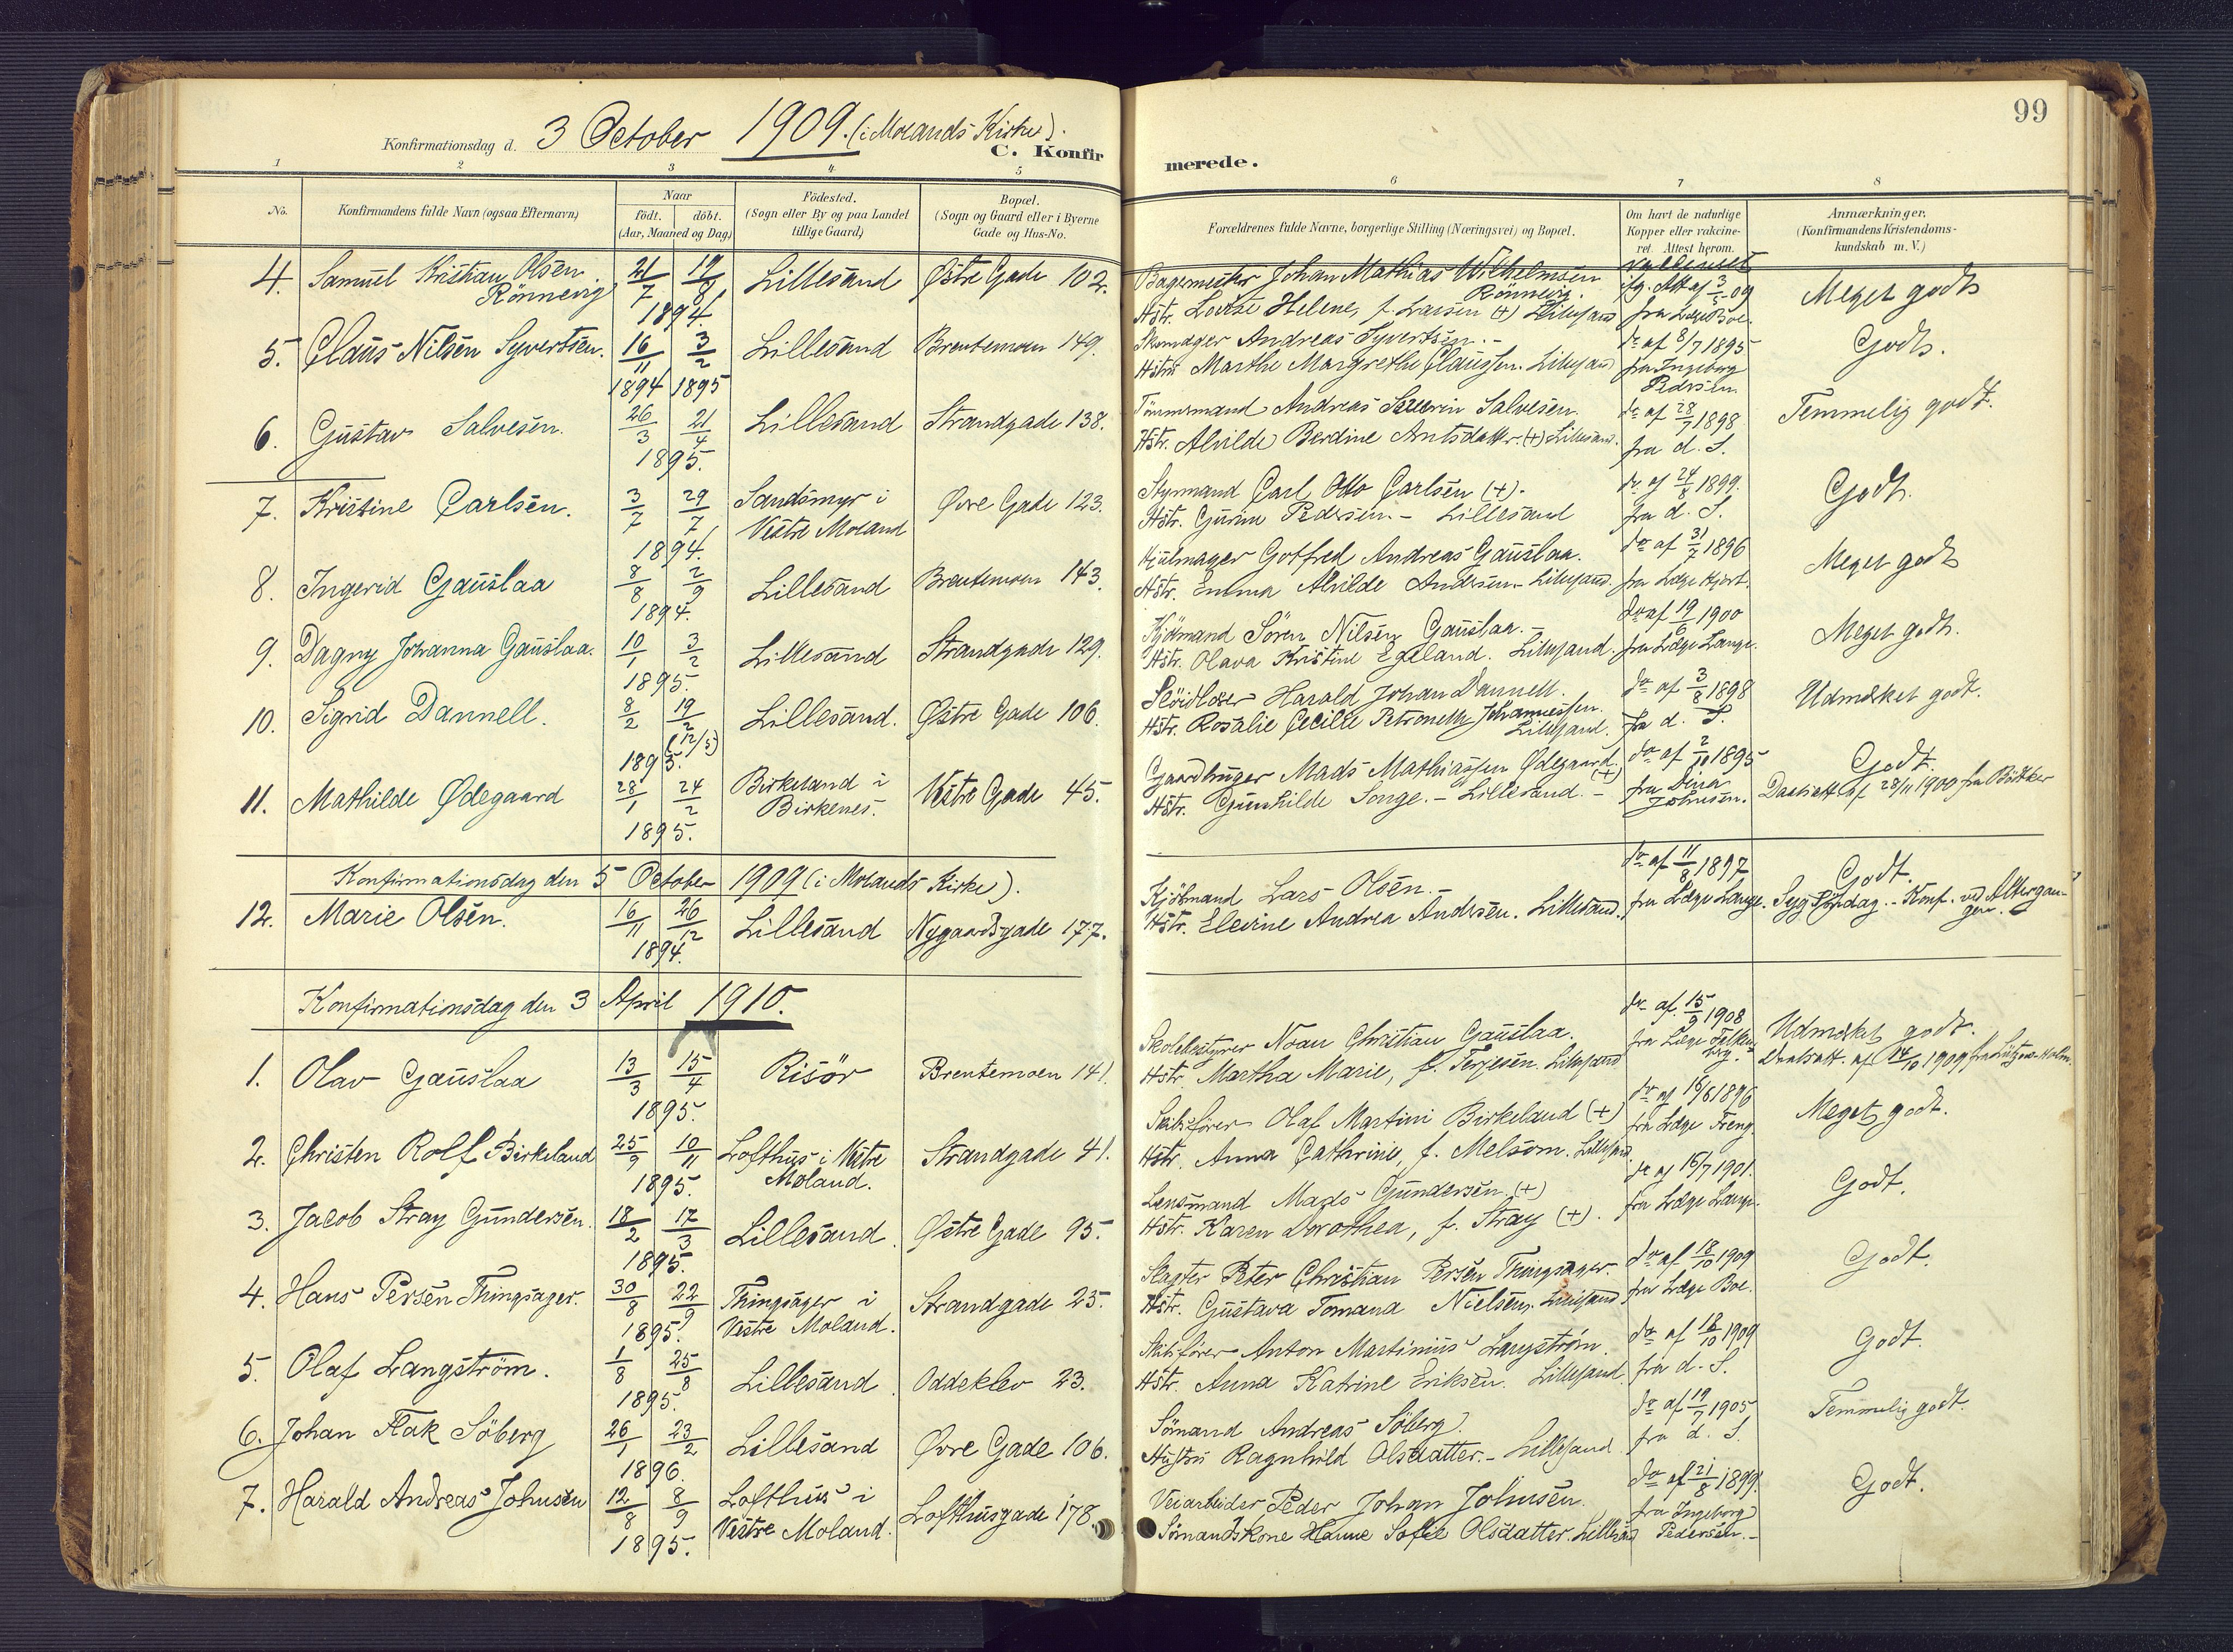 99
Konfirmationsdag d. 3 October 1909. (i Molands Kirke).
C. Konfirmerede.
1 2 3 4 5 6 7 8
No.
Konfirmandens fulde Navn (ogsaa Efternavn)
Naar
født. døbt.
(Aar, Maaned og Dag)
Födested.
(Sogn eller By og paa Landet
tillige Gaard)
Bopæl.
(Sogn og Gaard eller i Byerne
Gade og Hus-No.
Forældrenes fulde Navne, borgerlige Stilling (Næringsvei) og Bopæl.
Om havt de naturlige
Kopper eller vakcine-
ret. Attest herom.
Anmærkninger.
(Konfirmandens Kristendoms-
kundskab m. V.)
4. Samuel Kristian Olsen Rönnevig 21/7 19/8 1894. Lillesand Østre Gade 102.
Bagermester Johan Mathias Wilhelmsen Rönnevig.
Hstr. Lovise Helene, f. Larsen (+) Lillesand
ifg. Att af 3/5 09 fra Læge Boe.
Meget godt
5. Claus Nilsen Syvertsen. 16/11 1894 3/2 1895 Lillesand Brentemoen 149.
Skomager Andreas Syvertsen. -
Hstru Marthe Margrethe Claussen. Lillesand
do af 8/7 1895 fra Ingeborg Pedersen
Godt.
6. Gustav Salvesen. 26/3 21/4 1895. Lillesand Strandgade 138.
Tömmermand Andreas Severin Salvesen.
Hstr. Alvilde Berdine Antsdatter (+) Lillesand.
do af 28/7 1898 fra d. S.
Temmelig godt.
7. Kristine Carlsen. 3/7 29/7 1894. Sandsmyr i Vestre Moland Øvre Gade 123.
Styrmand Carl Otto Carlsen (+).
Hstr. Gurine Pedersen. - Lillesand
do af 24/8 1899. fra d. S.
Godt.
8. Ingerid Gauslaa 8/8 2/9 1894. Lillesand Brentemoen 143.
Hjulmager Gotfred Andreas Gauslaa.
Hstr. Emma Alvilde Andersen. Lillesand.
do af 31/7 1896 fra Læge Hjort.
Meget godt
9. Dagny Johanna Gauslaa. 10/1 3/2 1895. Lillesand Strandgade 129.
Kjöbmand Sören Nilsen Gauslaa. -
Hstr. Olava Kristine Egeland. Lillesand.
do af 19/6 1900 fra Læge Lange.
Meget godt.
10. Sigrid Dannell. 8/2 19/2 (12/5) 1895. Lillesand. Østre Gade 106.
Harald Johan Dannell.
Hstr. Rosalie Cecilie Petronelle Johannessen. Lillesand.
do af 3/8 1898 fra d. S.
Udmærket godt.
11. Mathilde Ødegaard 28/1 24/2 1895. Birkeland i Birkenes. Vestre Gade 45.
Gaardbruger Mads Mathiassen Ødegaard. (+)
Hstr. Gunhilde Songe. - Lillesand. -
do af 2/10 1895 fra Dina Johnsen.
Godt.
Daabsatt. af 28/11 1900 fra Bötker
Konfirmationsdag den 5 October 1909 (i Molands Kirke).
12. Marie Olsen. 16/11 26/12 1894. Lillesand Nygaardsgade 177.
Kjöbmand Lars Olsen. -
Hstr. Elevine Andrea Andersen. Lillesand.
do af 11/8 1897 fra Læge Lange.
Godt.
Syg Söndag. - Konf. ved Altergangen.
Konfirmationsdag den 3 April 1910.
1. Olav Gauslaa 13/3 15/4 1895. Risör Brentemoen 141.
Skolebestyrer Noan Christian Gauslaa.
Hstr. Martha Marie, f. Terjesen. Lillesand
do af. 15/9 1908 fra Læge Falkenberg.
Udmærket godt.
Daabsatt. af 14/10 1909 fra Lützow-Holm.
2. Christen Rolf Birkeland 25/9 10/11 1895. Lofthus i Vestre Moland. Strandgade 41.
Skibsförer Olaf Martini Birkeland (+)
Hstr. Anna Cathrine, f. Melsom. Lillesand.
do af 16/6 1896 fra Læge Freng.
Meget godt.
3. Jacob Stray Gundersen. 18/2 17/3 1895. Lillesand. Østre Gade 95.
Lensmand Mads Gundersen (+)
Hstr. Karen Dorothea, f. Stray (+).
do af 16/7 1901. fra Læge Lange.
Godt.
4. Hans Persen Thingsager. 30/8 22/9 1895. Thingsager i Vestre Moland. Strandgade 25.
Slagter Peter Christian Persen Thingsager.
Hstr. Gustava Tomana Nielsen. Lillesand
do af 18/10 1909 fra Læge Boe.
Godt.
5. Olaf Langström. 1/8 25/8 1895. Lillesand Oddeklev 23.
Skibsförer Anton Martinius Langström.
Hstr. Anna Katrine Eriksen. Lillesand.
do af 18/10 1909 fra d. S.
Godt.
6. Johan Flak Söberg 26/1 23/2 1896. Lillesand Øvre Gade 106.
Sömand Andreas Söberg.
Hustru Ragnhild Olsdatter. - Lillesand
do af 19/7 1905 fra d. S.
Temmelig godt.
7. Harald Andreas Johnsen 12/8 8/9 1895. Lofthus i Vestre Moland. Lofthusgade 178.
Veiarbeider Peder Johan Johnsen.
Sömandskone Hanne Sofie Olsdatter. Lillesand
do af 21/8 1899. fra Ingeborg Pedersen. -
Godt.